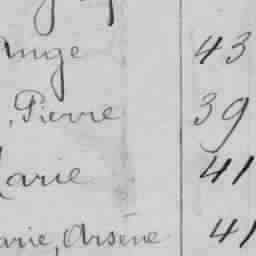 Ange 43
, Pierre 39
Marie 41
Marie, Arsène 41